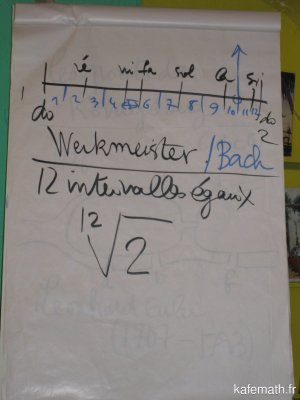 ré mi fa sol la si
1 2 3 4 5 6 7 8 9 10 11 12
do do
1 2
Werkmeister / Bach
12 intervalles égaux
12√2
kafemath.fr